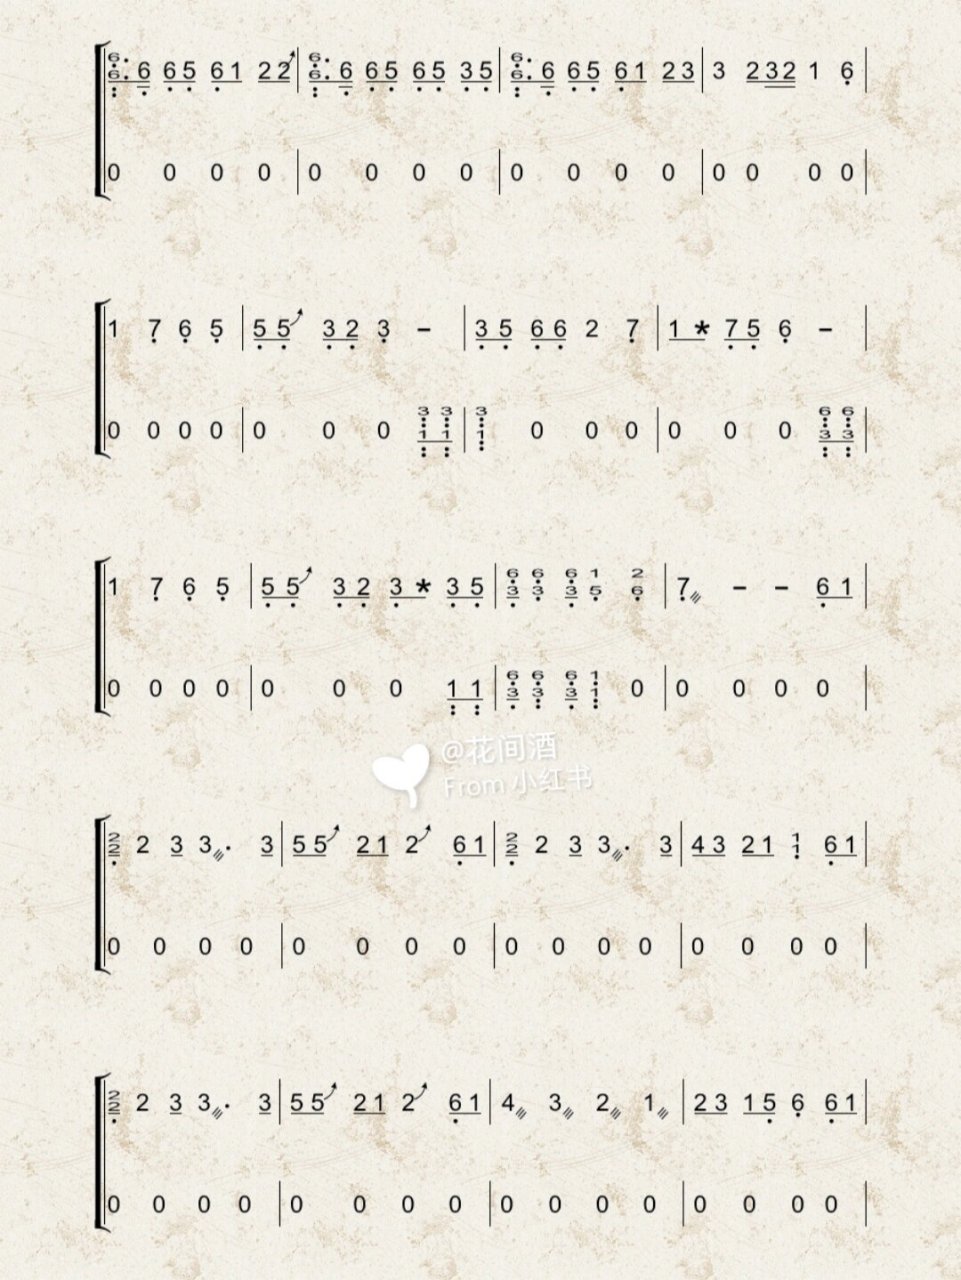 6 6 . 6 6 5 6 1 2 2 | 6 6 . 6 6 5 6 5 3 5 | 6 6 . 6 6 5 6 1 2 3 | 3 2 3 2 1 6 |
0 0 0 0 | 0 0 0 0 | 0 0 0 0 | 0 0 0 0 |
1 7 6 5 | 5 5 3 2 3 – | 3 5 6 6 2 7 | 1 * 7 5 6 – |
0 0 0 0 | 0 0 0 3 1 3 1 | 3 1 0 0 0 | 0 0 0 6 3 6 3 |
1 7 6 5 | 5 5 3 2 3 * 3 5 | 6 3 6 3 6 3 1 5 2 6 | 7 – – 6 1 |
0 0 0 0 | 0 0 0 1 1 | 6 3 6 3 6 3 1 1 0 | 0 0 0 0 |
@花间酒
From 小红书
2 2 2 3 3 . 3 | 5 5 2 1 2 6 1 | 2 2 2 3 3 . 3 | 4 3 2 1 1 1 6 1 |
0 0 0 0 | 0 0 0 0 | 0 0 0 0 | 0 0 0 0 |
2 2 2 3 3 . 3 | 5 5 2 1 2 6 1 | 4 3 2 1 | 2 3 1 5 6 6 1 |
0 0 0 0 | 0 0 0 0 | 0 0 0 0 | 0 0 0 0 |